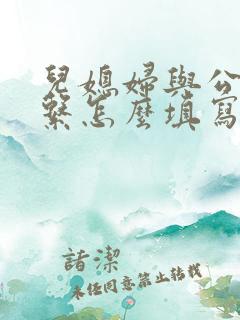 兒媳婦與公
繫怎麼填寫
諸潔
未经同意禁止转载